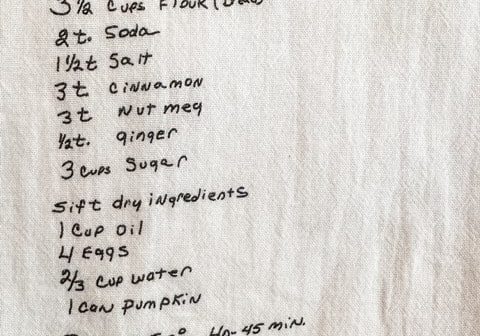 3 ½ cups Flour
2 t. Soda
1 ½ t Salt
3 t Cinnamon
3 t Nutmeg
½ t. ginger
3 cups Sugar
Sift dry ingredients
1 Cup oil
4 Eggs
2/3 cup water
1 can pumpkin
45 min.